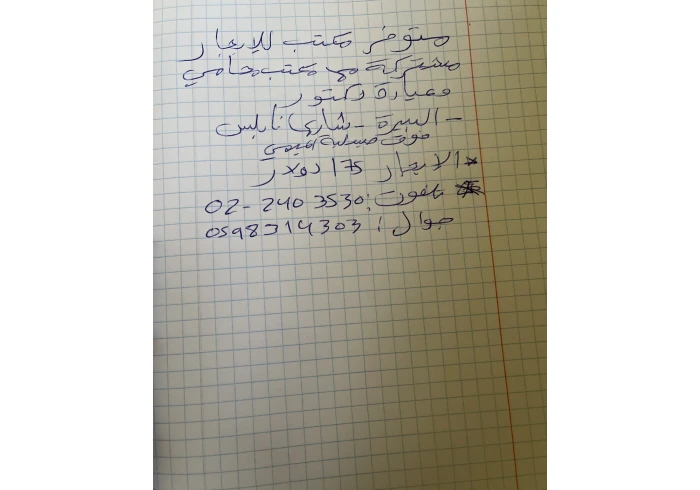 متوفر مكتب للإيجار
مشتركة مع مكتب محامي
وعيادة دكتور
- البيرة - شارع نابلس
فوق صيدلية
* الايجار 175 دولار
تلفون: 02-240 3530
جوال: 0598314303